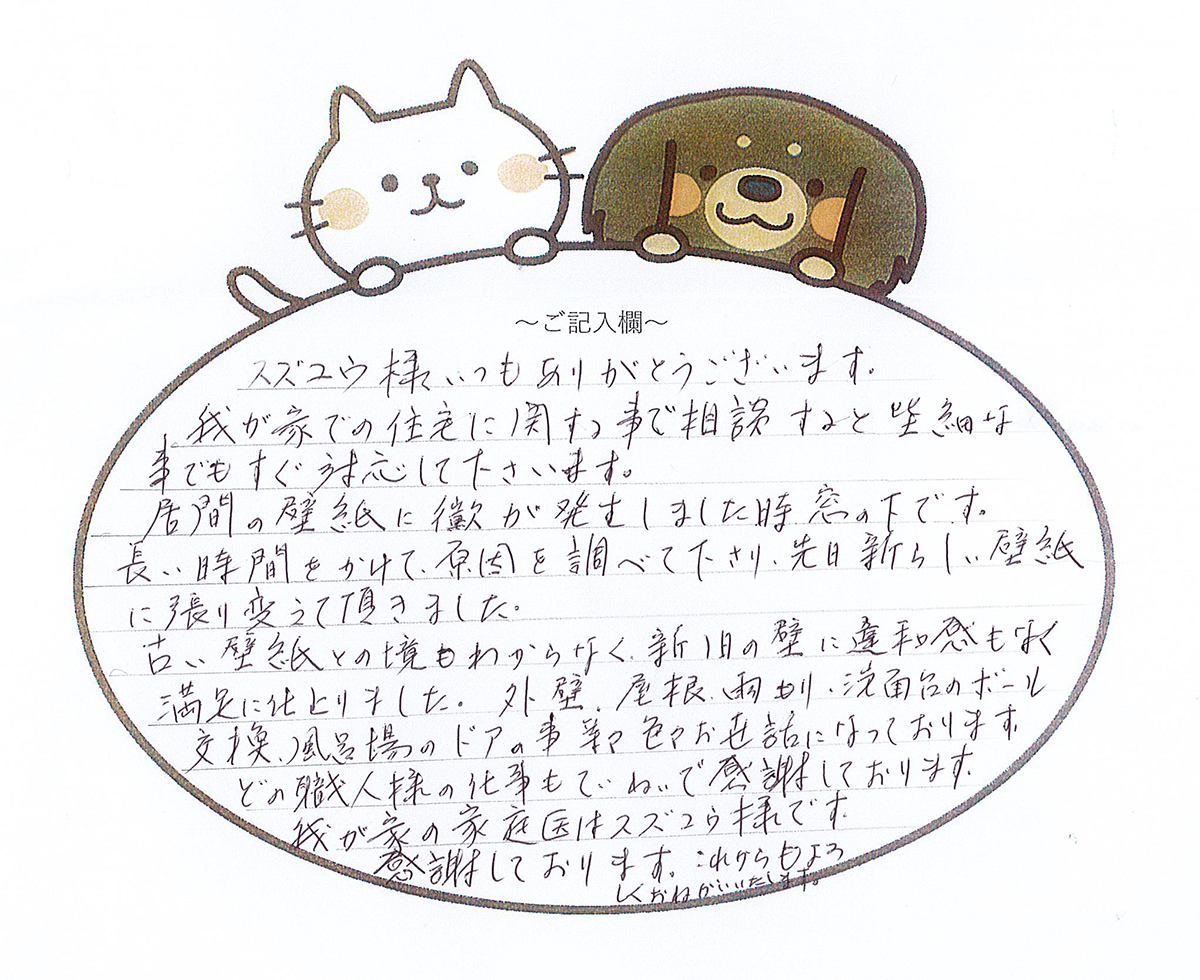 ～ご記入欄～
スズユウ様いつもありがとうございます。
我が家での住宅に関する事で相談すると些細な
事でもすぐ対応して下さいます。
居間の壁紙に黴が発生しました時窓の下です。
長い時間をかけて、原因を調べて下さり、先日新らしい壁紙
に張り変えて頂きました。
古い壁紙との境もわからなく、新旧の壁に違和感もなく
満足に仕上りました。外壁、屋根、雨もり、洗面台のボール
交換、風呂場のドアの事等々色々お世話になっております。
どの職人様の仕事もていねいで感謝しております。
我が家の家庭医はスズユウ様です。
感謝しております。これからもよろ
しくおねがいいたします。